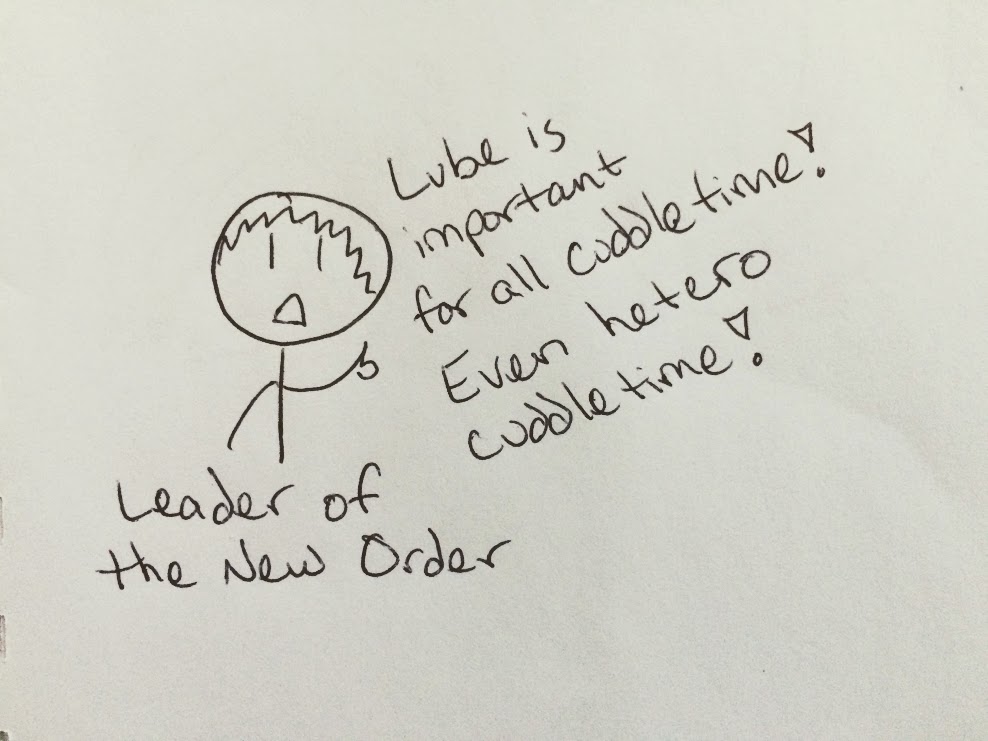 Lube is
important
for all cuddletime!
Even hetero
cuddletime!
Leader of
the New Order